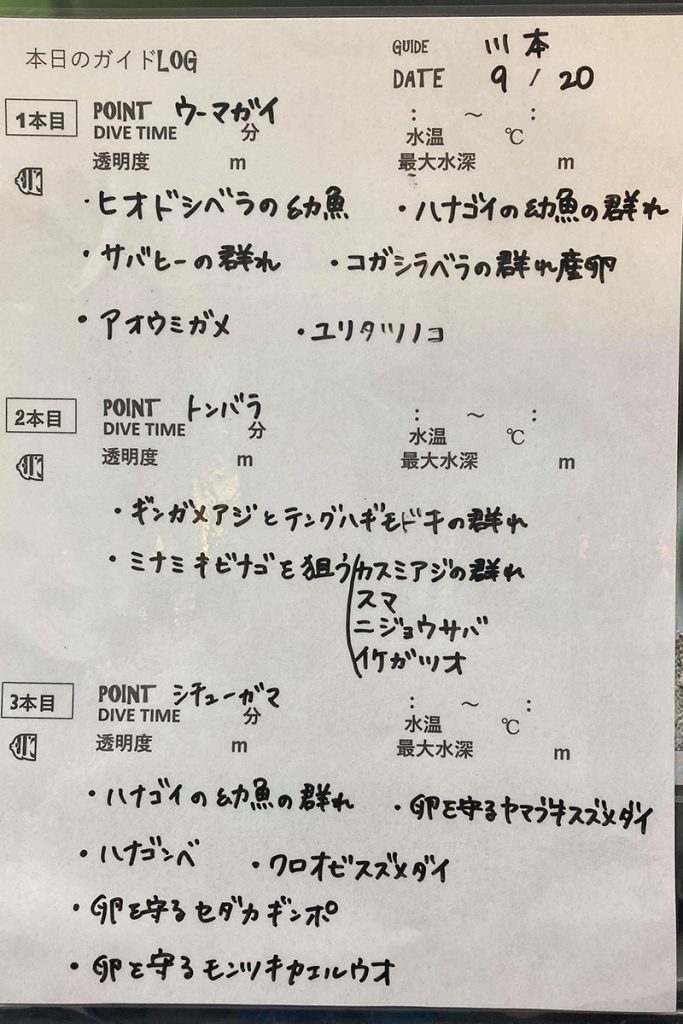 本日のガイドLOG
GUIDE 川本
DATE 9 / 20
1本目 POINT ウーマガイ
DIVE TIME 分 : ～ :
水温 ℃
透明度 m 最大水深 m
・ヒオドシベラの幼魚 ・ハナゴイの幼魚の群れ
・サバヒーの群れ ・コガシラベラの群れ産卵
・アオウミガメ ・ユリタツノコ
2本目 POINT トンバラ
DIVE TIME 分 : ～ :
水温 ℃
透明度 m 最大水深 m
・ギンガメアジとテングハギモドキの群れ
・ミナミキビナゴを狙う(カスミアジの群れ
スマ
ニジョウサバ
イケガツオ
3本目 POINT シチューガマ
DIVE TIME 分 : ～ :
水温 ℃
透明度 m 最大水深 m
・ハナゴイの幼魚の群れ ・卵を守るヤマブキスズメダイ
・ハナゴンベ ・クロオビスズメダイ
・卵を守るセダカギンポ
・卵を守るモンツキカエルウオ